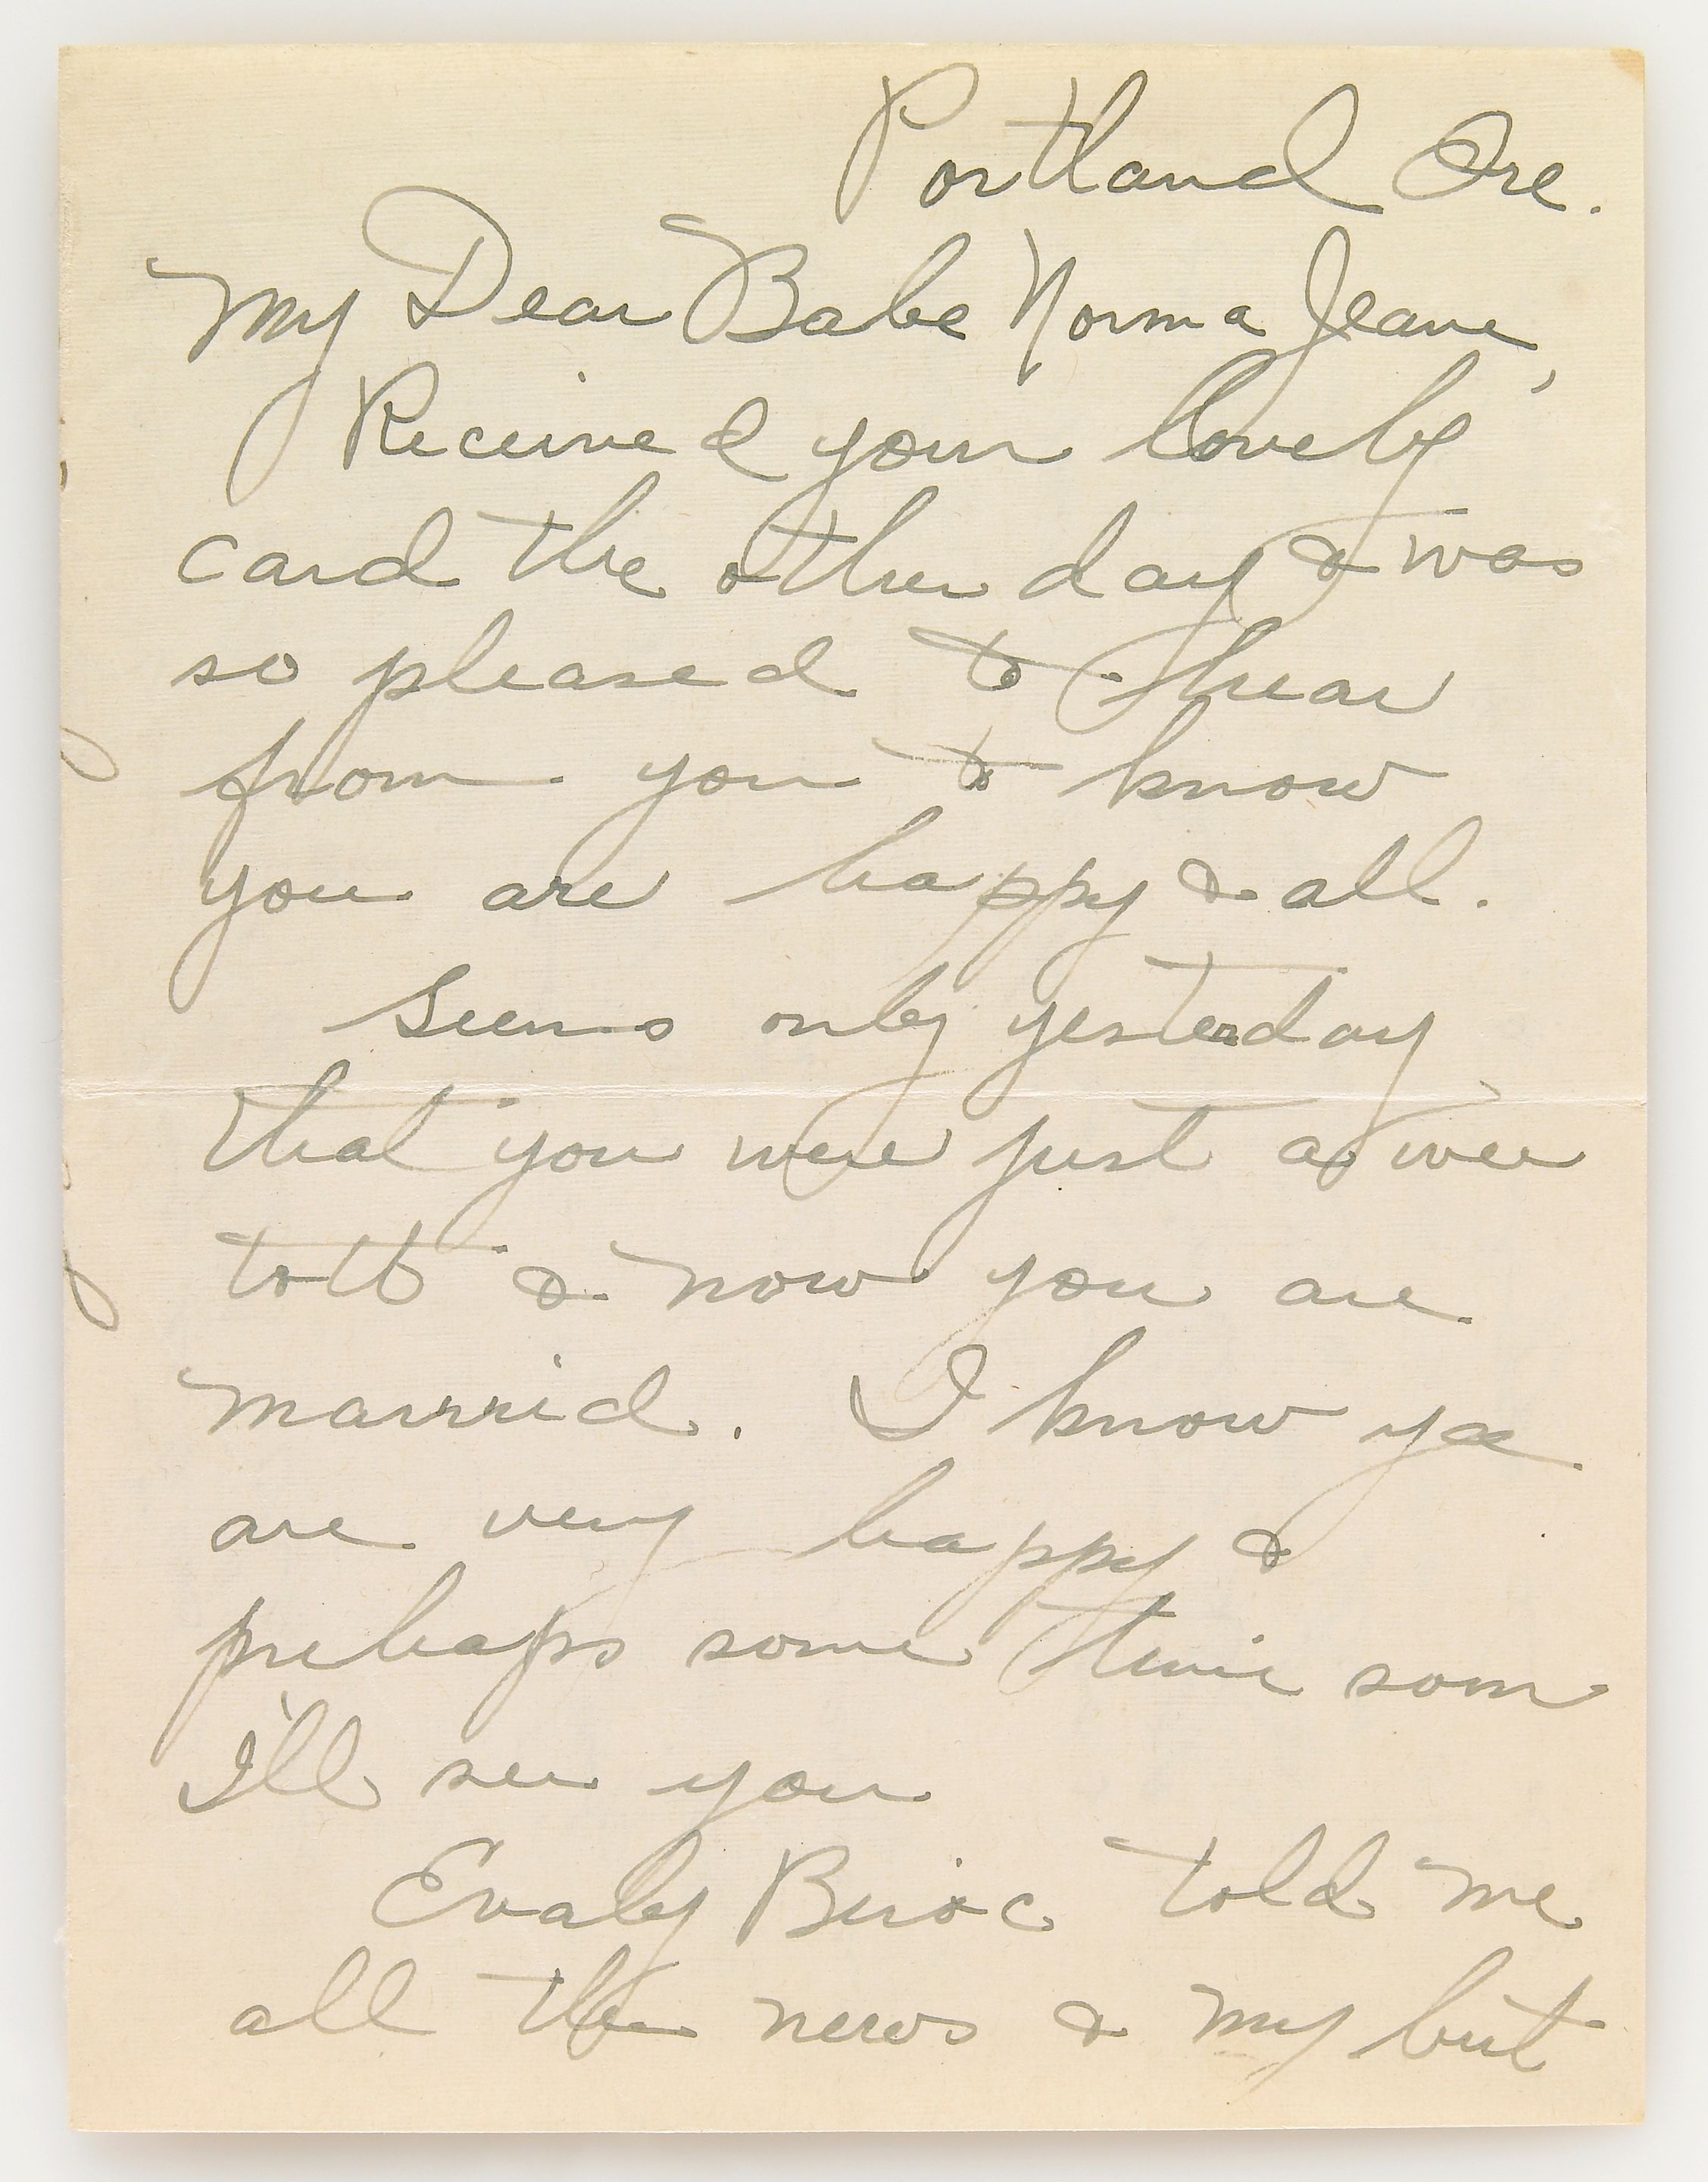 Portland Ore.
My Dear Babe Norma Jeane,
Received your lovely
card the other day & was
so pleased to hear
from you & know
you are happy & all.
Seems only yesterday
that you were just a wee
tott & now you are
married. I know ya
are very happy &
perhaps some time soon
I'll see you
told me
all the news & my but